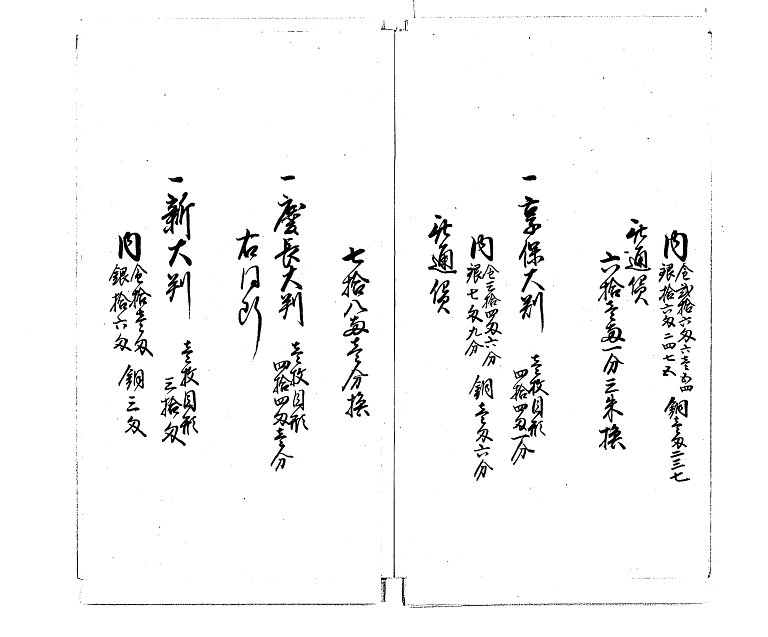 内 金弐拾六匁六壱五四
銀拾六匁二四七五 銅壱匁二三七
此通償
六拾壱両一分三朱換
一 享保大判 壱枚目形
四拾四匁一分
内 金三拾四匁六分
銀七匁九分 銅壱匁六分
此通償
七拾八両壱分換
一 慶長大判 壱枚目形
四拾四匁壱分
右同断
一 新大判 壱枚目形
三拾匁
内 金拾壱匁
銀拾六匁 銅三匁